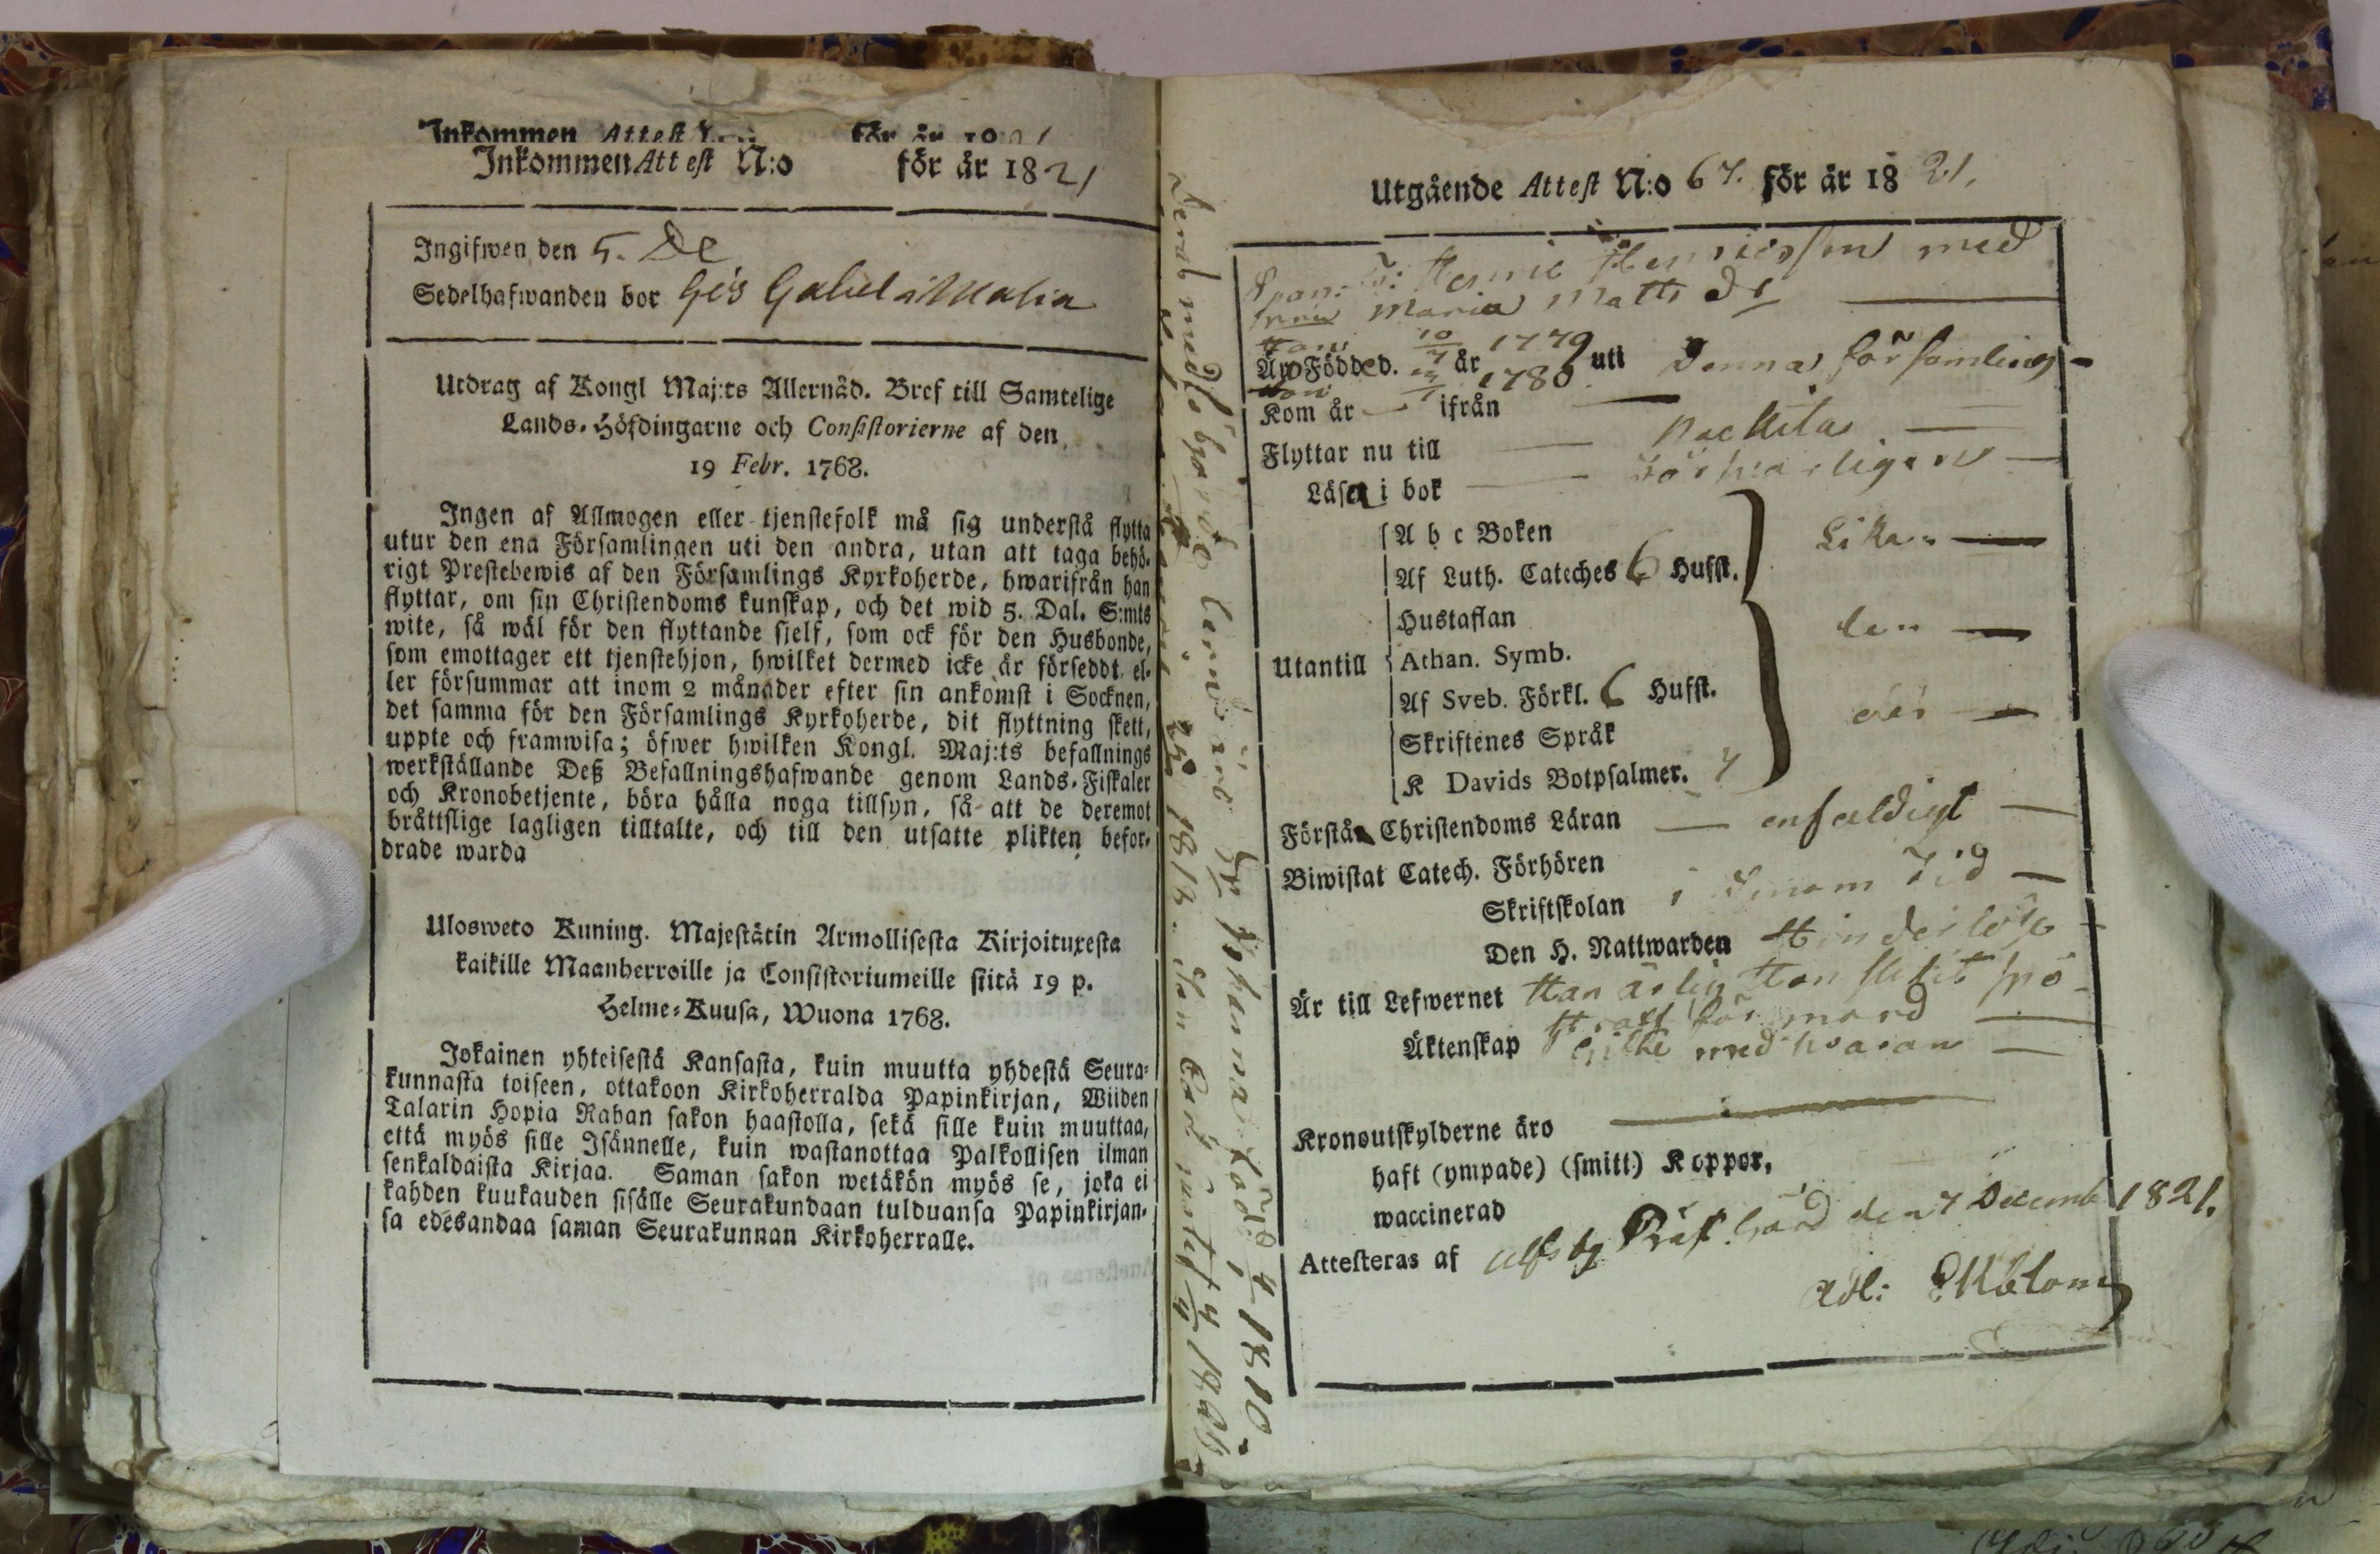 Inkommen Attest
för år
Inkommen Attest N:o för år 1821
Ingifwen den 5. De
Sedelhafwanden bor
Utdrag af Kongl Maj:ts Allernåd. Bref till Samtelige
Lands-Höfdingarne och Consistorierne af den
19 Febr. 1768.
Ingen af Allmogen eller tjenstefolk må sig understå flytta
utur den ena Församlingen uti den andra, utan att taga behö-
rigt Prestebewis af den Församlings Kyrkoherde, hwarifrån han
flyttar, om sin Christendoms kunskap, och det wid 5. Dal. S:mts
wite, så wäl för den flyttande sjelf, som ock för den Husbonde,
som emottager ett tjenstehjon, hwilket dermed icke är förseddt, el-
ler försummar att inom 2 månader efter sin ankomst i Socknen,
det samma för den Församlings Kyrkoherde, dit flyttning skett,
uppte och framwisa; öfwer hwilken Kongl. Maj:ts befallnings
werkställande Deß Befallningshafwande genom Lands-Fiskaler
och Kronobetjente, böra hålla noga tillsyn, så att de deremot
bråttslige lagligen tilltalte, och till den utsatte plikten befor-
drade warda
Ulosweto Kuning. Majestätin Armollisesta Kirjoituxesta
kaikille Maanherroille ja Consistoriumeille siitä 19 p.
Helme-Kuusa, Wuona 1768.
Jokainen yhteisestä Kansasta, kuin muutta yhdestä Seura-
kunnasta toiseen, ottakoon Kirkoherralda Papinkirjan, Wiiden
Talarin Hopia Rahan sakon haastolla, sekä sille kuin muuttaa,
että myös sille Isännelle, kuin wastanottaa Palkollisen ilman
senkaldaista Kirjaa. Saman sakon wetäkön myös se, joka ei
kahden kuukauden sisälle Seurakundaan tulduansa Papinkirjan-
sa edesandaa saman Seurakunnan Kirkoherralle.
Johanna född 4/7 1810
1813
Utgående Attest N:o 67. För år 1821.
Henric Henricsson med
Maria Matts dr
Han 10/7 1779
Äro Födde d. år 1780 uti Denna församling
Hon
Kom år — ifrån —
Flyttar nu till —
Läsa i bok — försvarligen —
A b c Boken
Af Luth. Cateches 6 Hufst.
Hustaflan
Utantill Athan. Symb.
Af Sveb. Förkl. 6 Hufst.
Skriftenes Språk
K Davids Botpsalmer. 7
Lika —
le —
Förstå Christendoms Läran — enfaldigt —
Biwistat Catech. Förhören
Skriftskolan i sinom tid —
Den H. Nattwarden Hinderlöse —
Är till Lefwernet Han ärlig Hon slitit spö-
straff för mord —
Äktenskap Gifte med hvaran —
Kronoutskylderne äro —
haft (ympade) (smitt:) Koppor,
waccinerad
Attesteras af Ulfsby Präst Gård den 7 Decemb 1821.